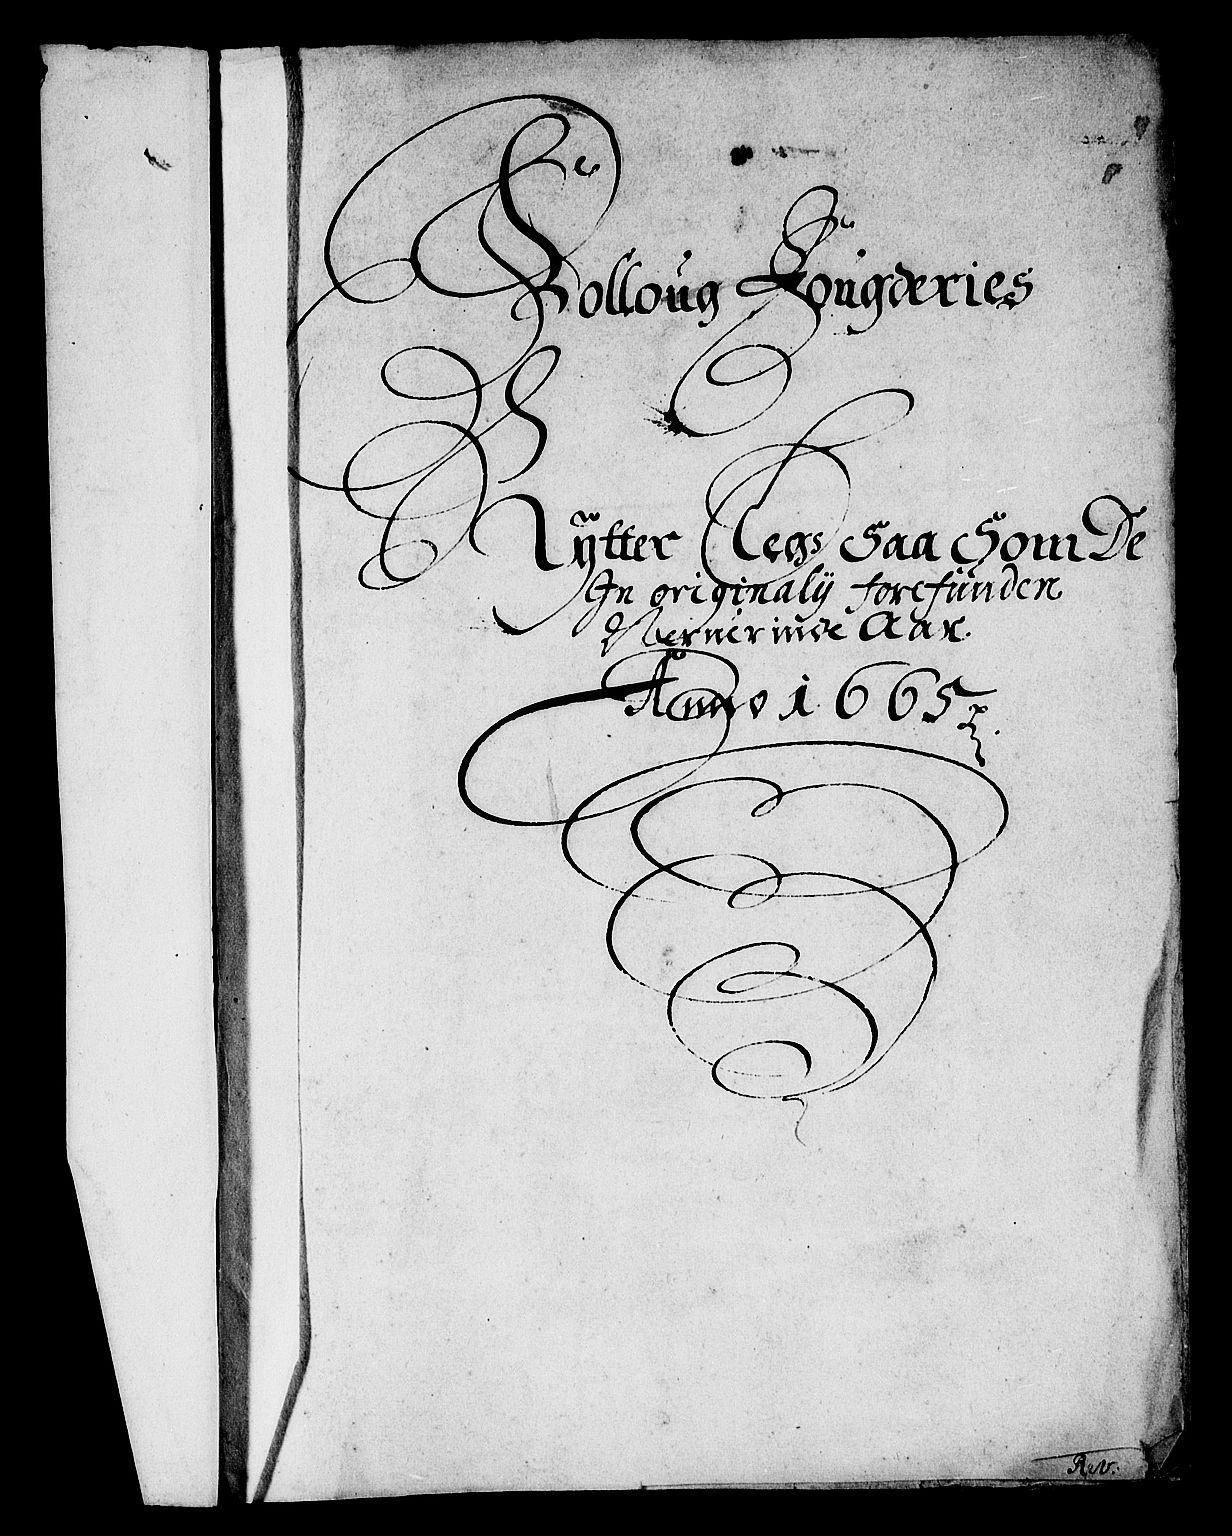 Folloug Fougderies
Rÿtter Legs Saa Som De
In originalij forefunden
Nernerinde Aar.
Anno 1665
Rev.